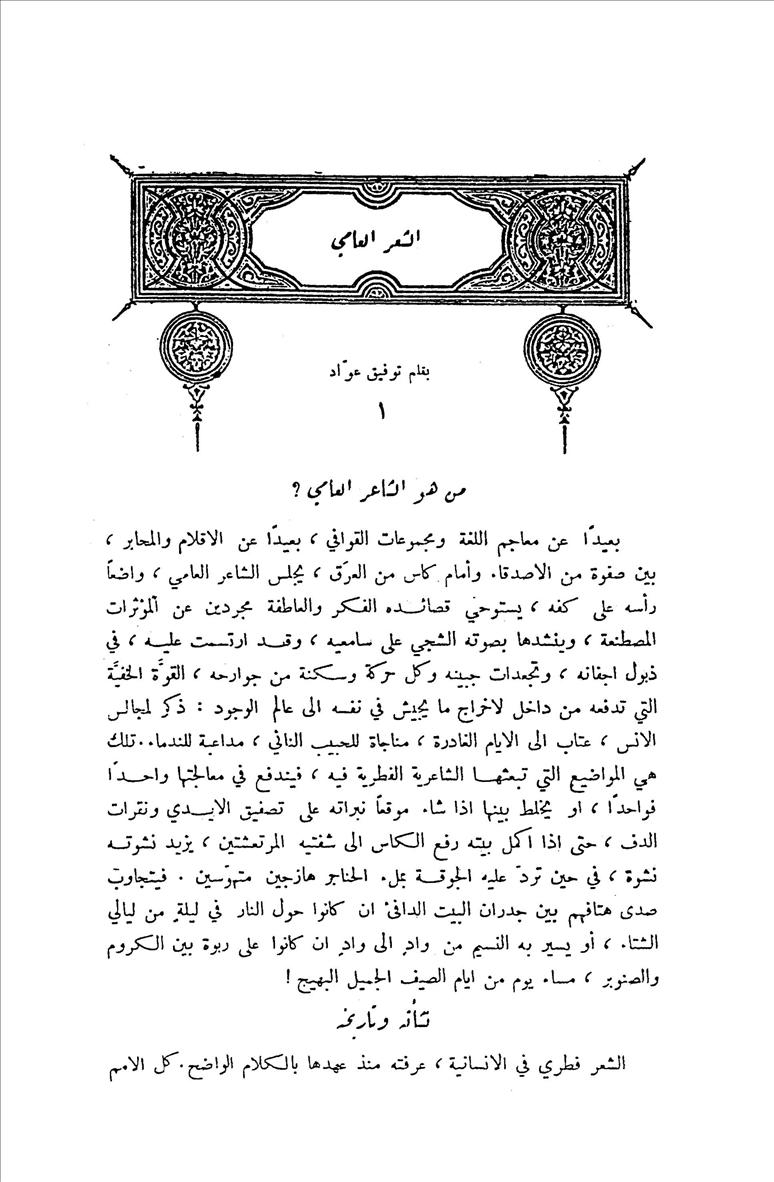 الشعر العامي
بقلم توفيق عوّاد
١
من هو الشاعر العامي ؟
بعيدًا عن معاجم اللغة ومجموعات القوافي ، بعيدًا عن الاقلام والمحابر ،
بين صفوة من الاصدقاء وأمام كاس من العرَق ، يجلس الشاعر العامي ، واضعاً
رأسه على كفه ، يستوحي قصائده الفكر والعاطفة مجردين عن المؤثرات
المصطنعة ، وينشدها بصوته الشجي على سامعيه ، وقد ارتسمت عليه ، في
ذبول اجفانه ، وتجعدات جبينه وكل حركة وسكنة من جوارحه ، القوَّة الخفيَّة
التي تدفعه من داخل لاخراج ما يجيش في نفسه الى عالم الوجود : ذكر لمجالس
الانس ، عتاب الى الايام الغادرة ، مناجاة للحبيب النائي ، مداعبة للندماء..تلك
هي المواضيع التي تبعثها الشاعرية الفطرية فيه ، فيندفع في معالجتها واحدًا
فواحدًا ، او يخلط بينها اذا شاء موقعاً نبراته على تصفيق الايدي ونقرات
الدف ، حتى اذا اكمل بيته رفع الكاس الى شفتيه المرتعشتين ، يزيد نشوته
نشوة ، في حين تردّ عليه الجوقة بملء الحناجر هازجين متهوّسين . فيتجاوب
صدى هتافهم بين جدران البيت الدافئ ان كانوا حول النار في ليلةٍ من ليالي
الشتاء ، أو يسير به النسيم من وادٍ الى وادٍ ان كانوا على ربوة بين الكروم
والصنوبر ، مساء يوم من ايام الصيف الجميل البهيج !
نشأته وتاريخه
الشعر فطري في الانسانية ، عرفته منذ عهدها بالكلام الواضح.كل الامم